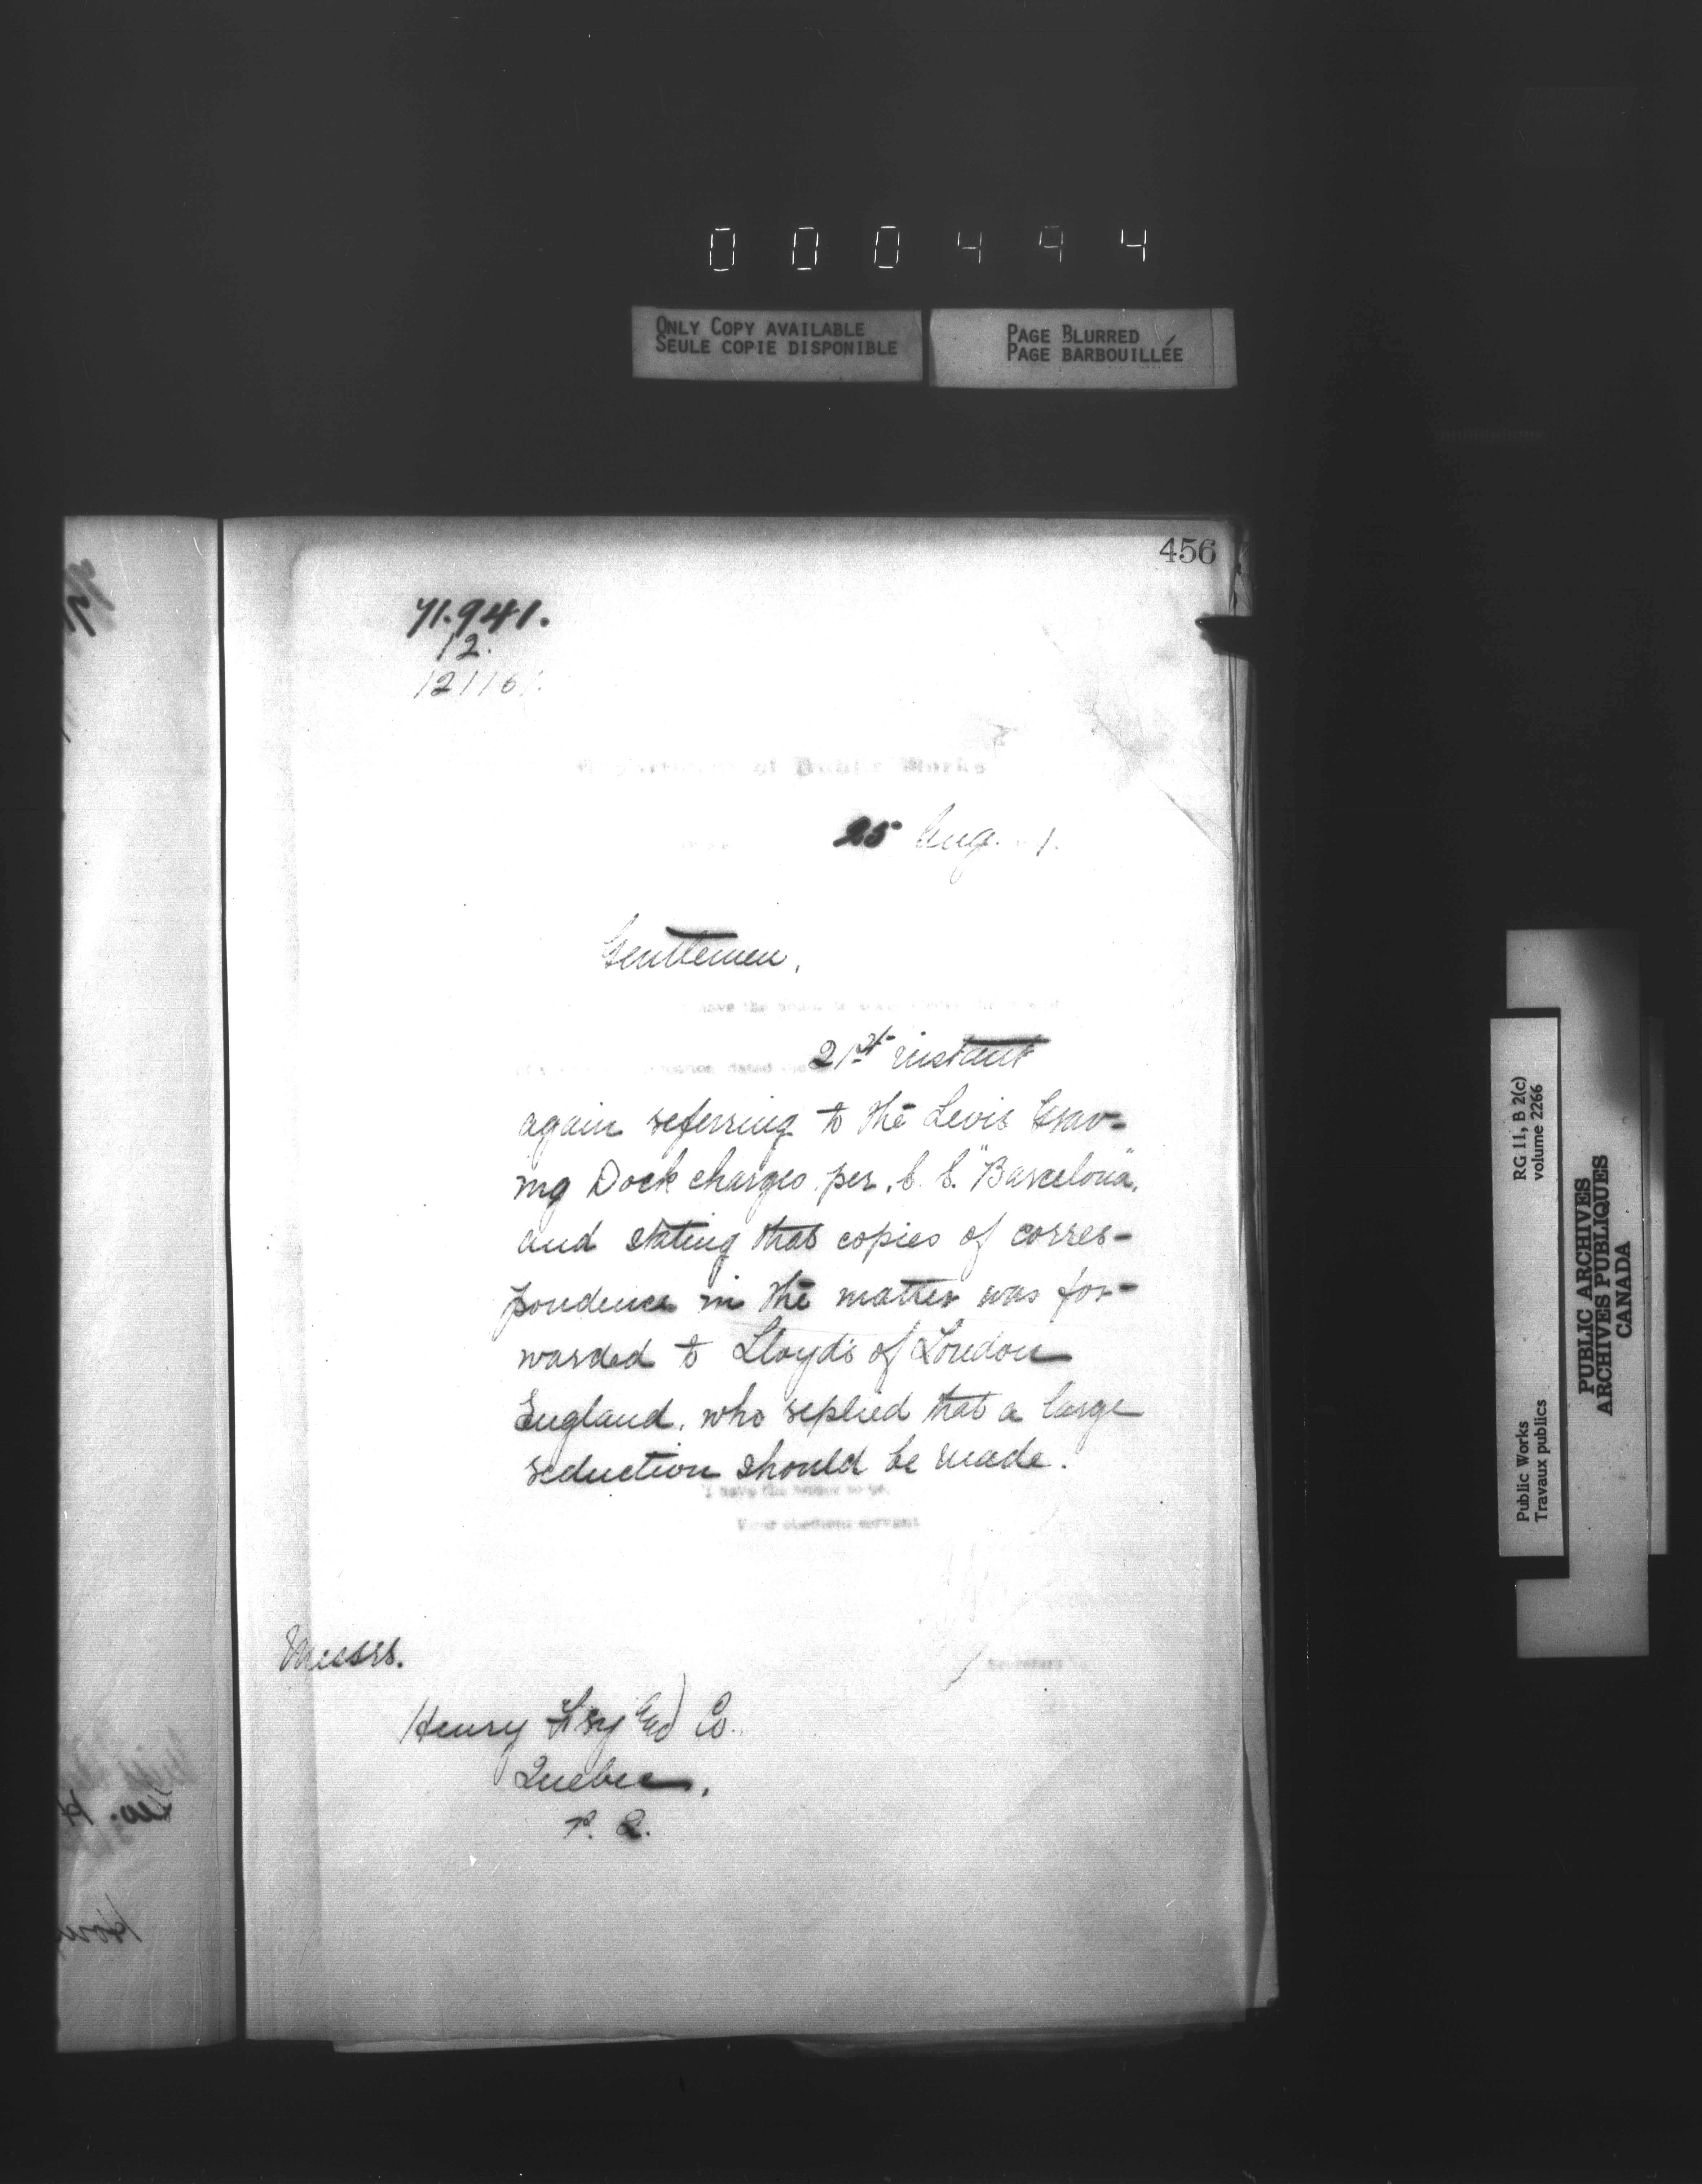 000494
ONLY COPY AVAILABLE
SEULE COPIE DISPONIBLE
PAGE BLURRED
PAGE BARBOUILLÉE
456
71.941.
12.
Department of Public Works
25 Aug. 1.
Gentlemen,
have the honor to
dated the
21st instant
again referring to the Levis Grav-
ing Dock charges per. S. S. "Barcelona",
and stating that copies of corres-
pondence in the matter was for-
warded to Lloyd's of London
England, who replied that a large
reduction should be made.
I have the honor to be,
Your obedient servant
Secretary
Messrs.
Henry Fry and Co.
Quebec,
P. Q.
RG 11, B 2(c)
volume 2266
Public Works
Travaux publics
PUBLIC ARCHIVES
ARCHIVES PUBLIQUES
CANADA